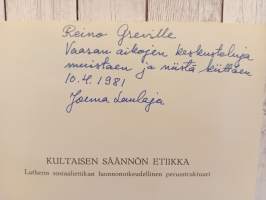 Reino Greville
Vaasan aikojen keskusteluja
muistaen ja niistä kiittäen
10.4.1981
Jorma Laulaja
KULTAISEN SÄÄNNÖN ETIIKKA
Lutherin sosiaalietiikan luonnonoikeudellinen perusstruktuuri